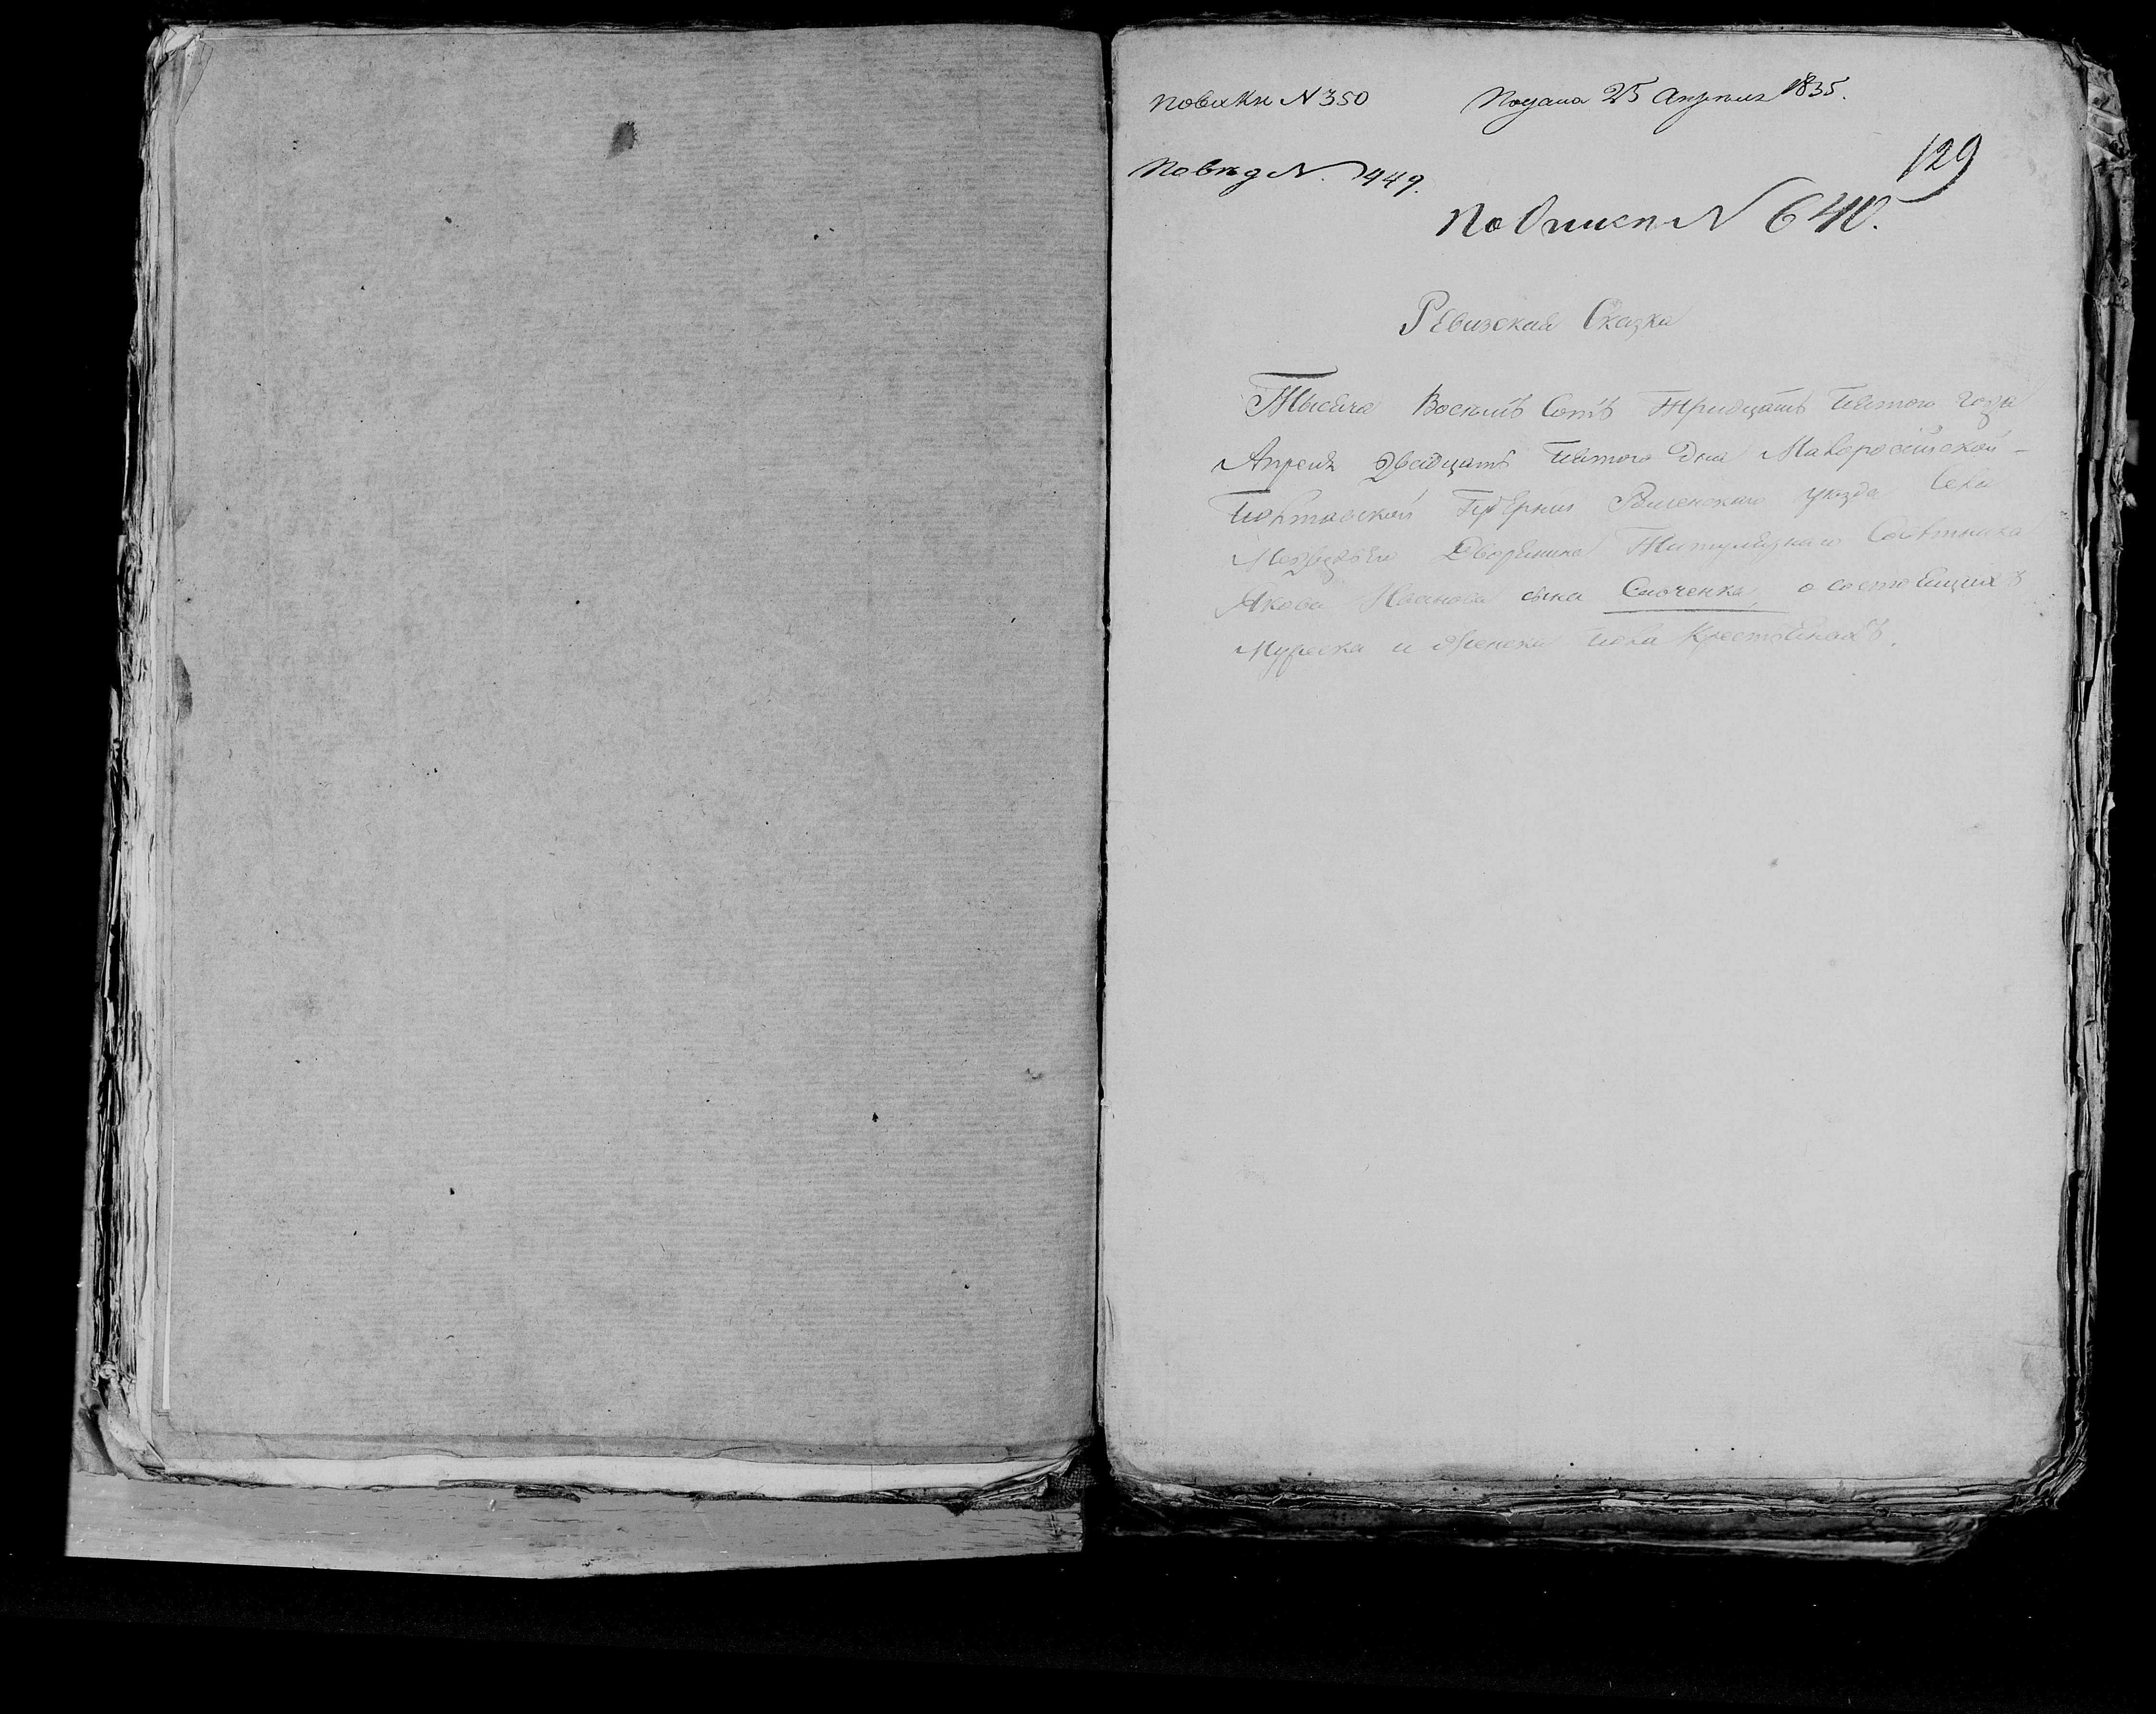 По вакк N 350
Подана 25 Апреля 1835.
129
По вѣд N. 449.
По Описи N 640.
Ревизская Сказка
Тысеча Восемъ Сотъ Тридцать Пятого года
Апреля Двадцать Пятого Дня Малоросійской
Полтавской Губерніи Роменского уѣзда Села
Дворянина Титулярнаго Совѣтника
Якова Иванова сына Слюченка, о состоящихъ
Мужеска и Женска пола Крестьянахъ.